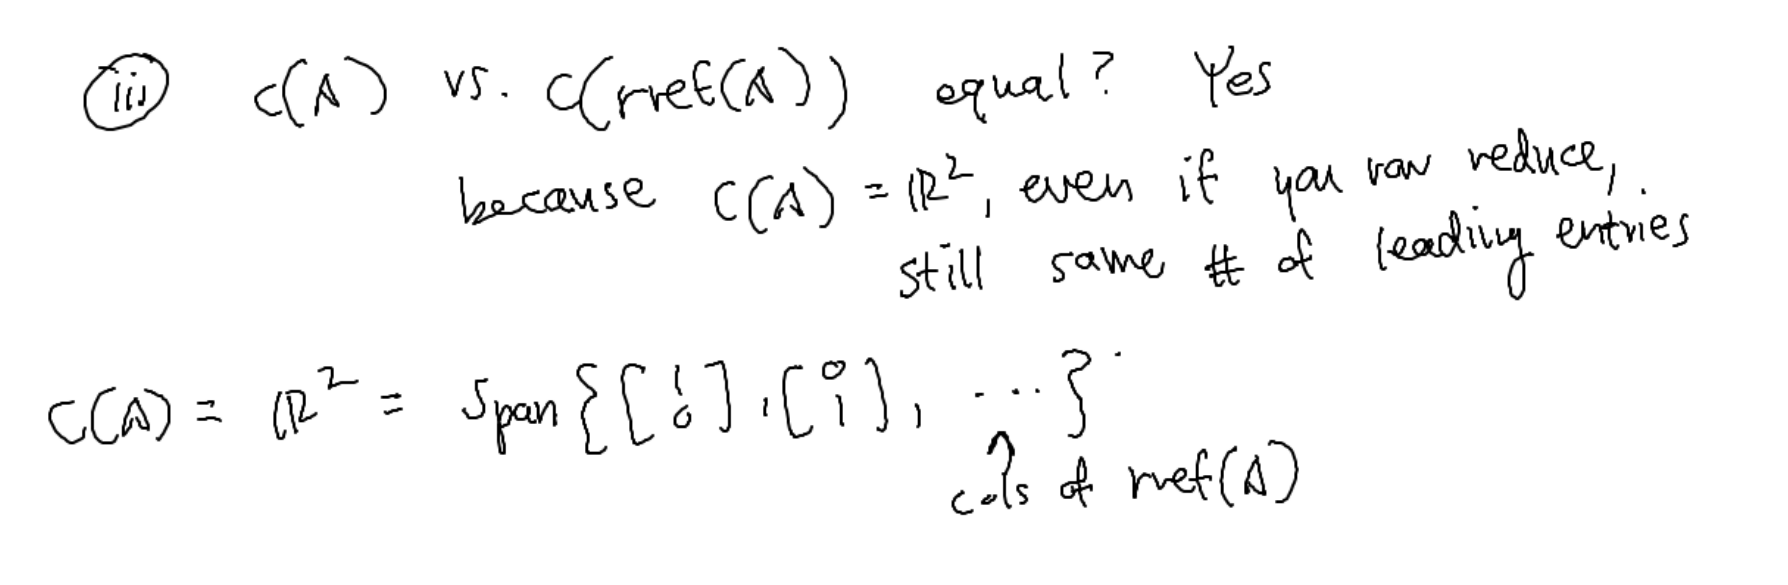 (iii) C(A) vs. C(rref(A)) equal? Yes
because C(A) = ℝ², even if you row reduce,
still same # of leading entries
C(A) = ℝ² = span{[1 0], [0 1], ...}
cols of rref(A)